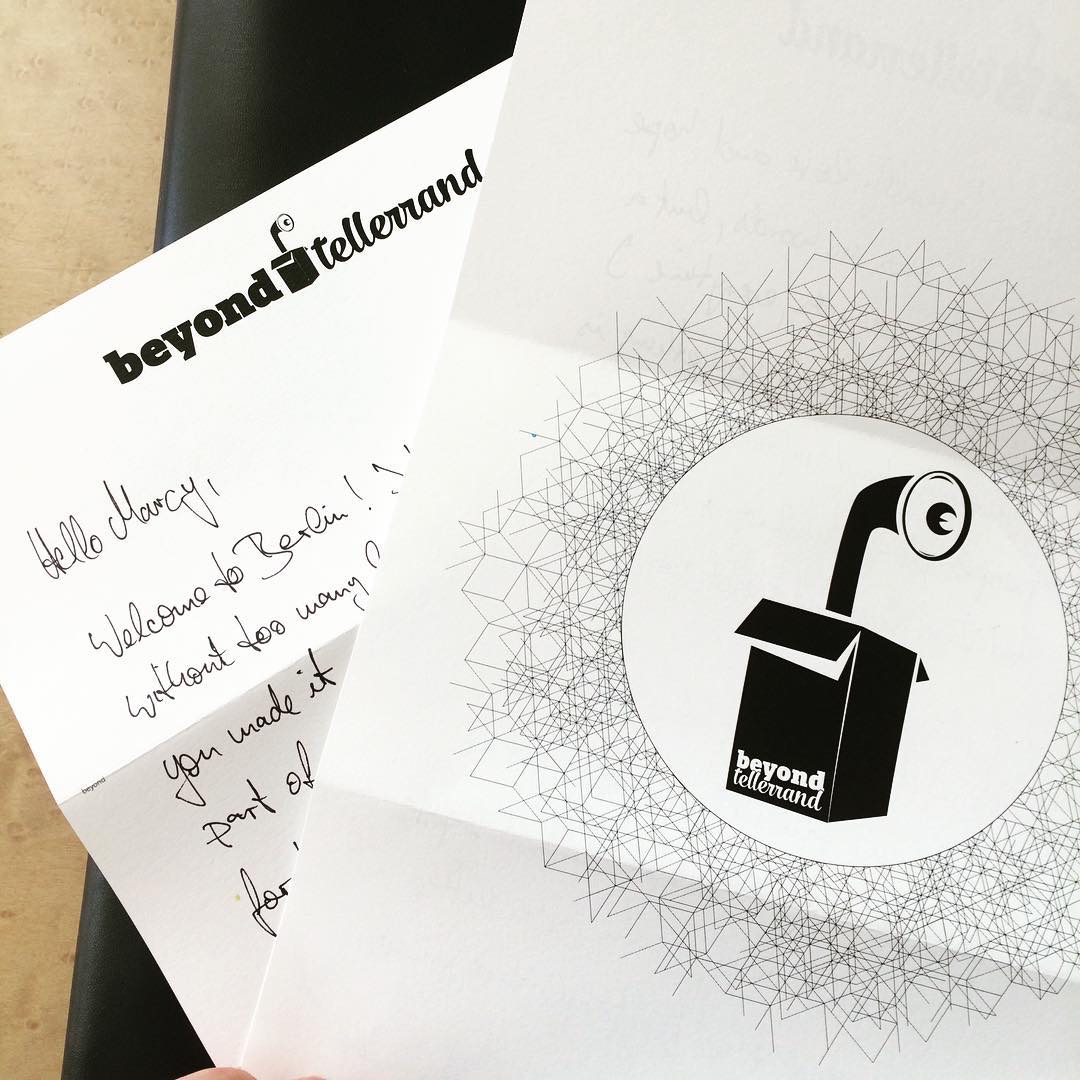 beyond tellerrand
Hello Marcy,
Welcome to Berlin!
without too many
you made it
part of
for
beyond
beyond
tellerrand